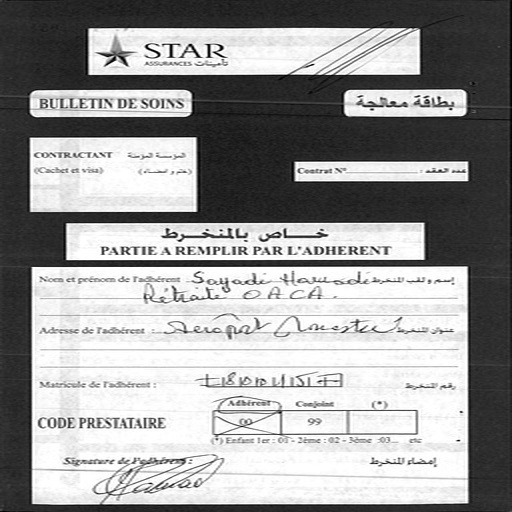 STAR
ASSURANCES تأمينات
BULLETIN DE SOINS بطاقة معالجة
CONTRACTANT المؤسسة المؤمنة
(Cachet et visa) (ختم و امضاء)
Contrat N° عدد العقد :
خاص بالمنخرط
PARTIE A REMPLIR PAR L'ADHERENT
Nom et prénom de l'adhérent Sayadi Hamadi إسم و لقب المنخرط
Rétraité OACA.
Adresse de l'adhérent : Aeroport عنوان المنخرط
Matricule de l'adhérent : رقم المنخرط
Adhérent Conjoint (*)
CODE PRESTATAIRE 00 99
(*) Enfant 1er : 01 - 2ème : 02 - 3ème :03... etc
Signature de l'adhérent : إمضاء المنخرط